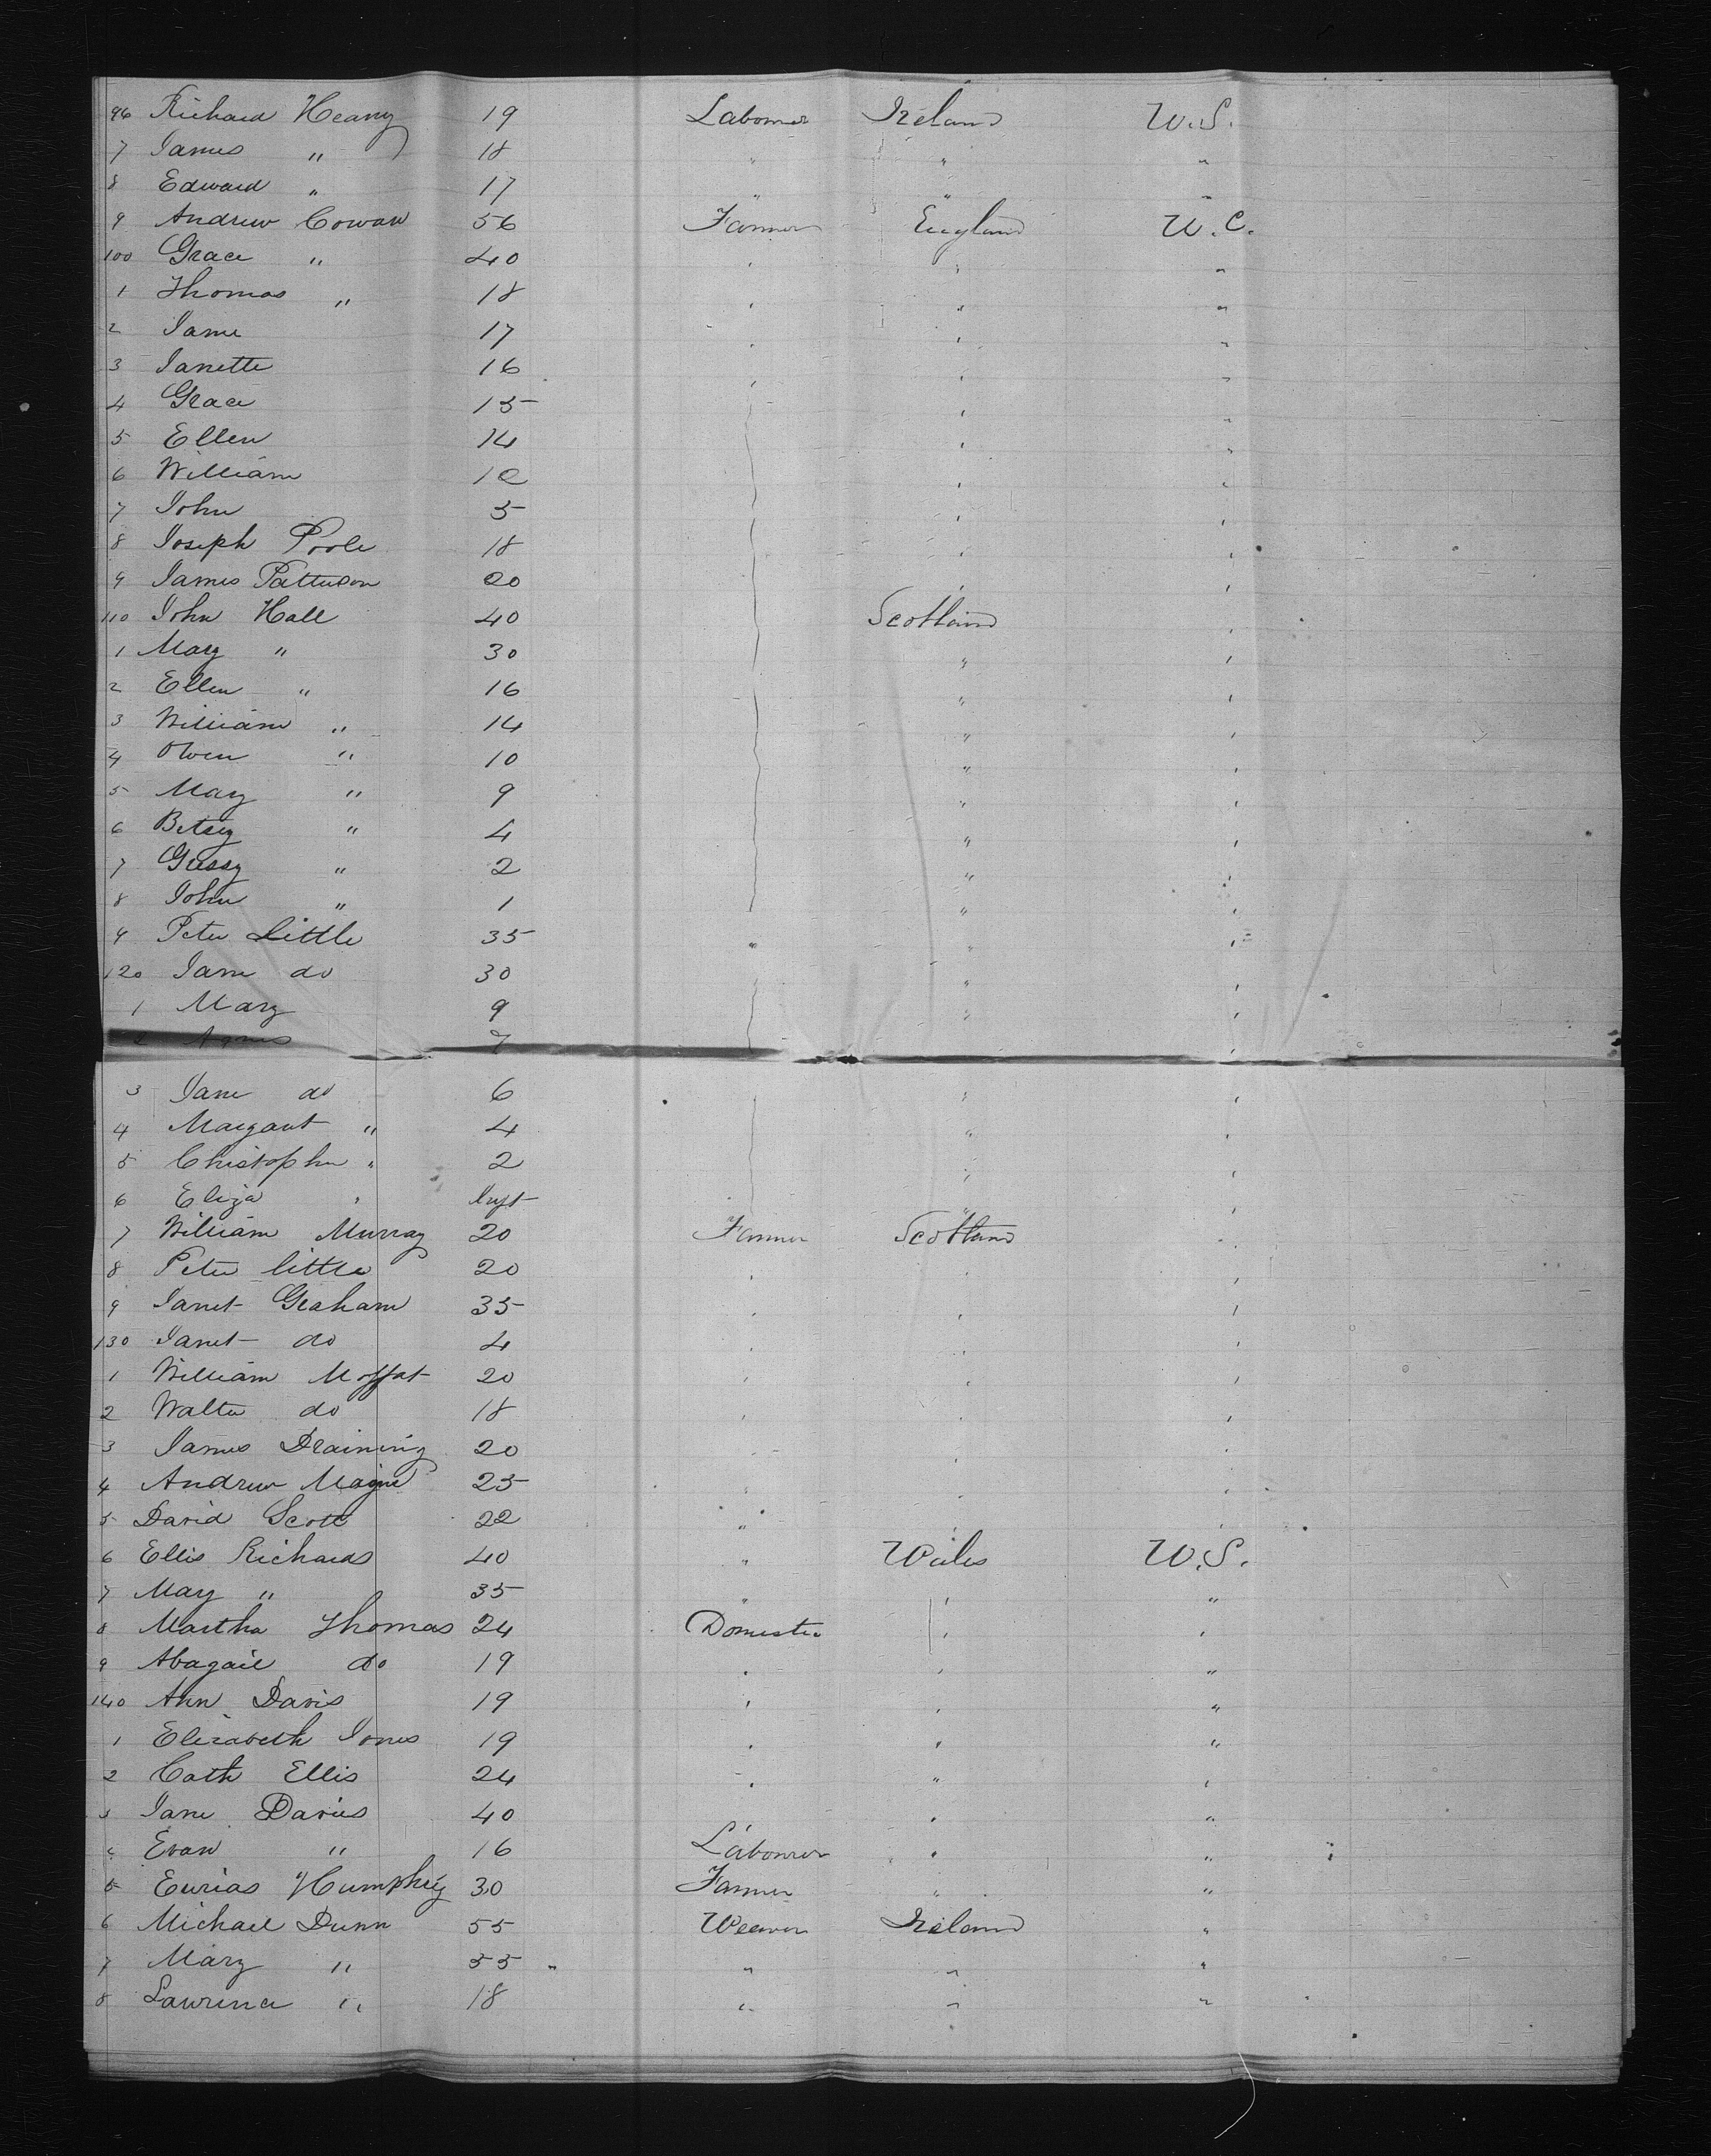 96 Richard Heany 19 Labourer Ireland U.S.
7 James " 18 " " "
8 Edward " 17 " " "
9 Andrew Cowan 56 Farmer England U.C.
100 Grace " 40 " " "
1 Thomas " 18 " " "
2 Jane 17 " " "
3 Janette 16 " " "
4 Grace 15 " "
5 Ellen 14 " "
6 William 12 " "
7 John 5 " "
8 Joseph Poole 18 " "
9 James Patterson 20 " "
110 John Hall 40 Scotland "
1 Mary " 30 " "
2 Ellen " 16 " "
3 William " 14 " "
4 Owen " 10 " "
5 Mary " 9 " "
6 Betsey " 4 " "
7 Gussy " 2 " "
8 John " 1 " "
9 Peter Little 35 " " "
120 Jane do 30 " "
1 Mary 9 " "
2 Agnes 7 "
3 Jane do 6 " "
4 Margaret " 4 " "
5 Christopher " 2 " "
6 Eliza " Inft " "
7 William Murray 20 Farmer Scotland "
8 Peter little 20 " " "
9 Janet Graham 35 " " "
130 Janet do 4 " " "
1 William Moffat 20 " " "
2 Walter do 18 " " "
3 James Draining 20 " " "
4 Andrew 25 " " "
5 David Scott 22 " " "
6 Ellis Richards 40 " Wales U.S.
7 Mary " 35 " " "
8 Martha Thomas 24 Domestic " "
9 Abagail do 19 " " "
140 Ann Davis 19 " " "
1 Elizabeth Jones 19 " " "
2 Cath Ellis 24 " " "
3 Jane Davies 40 " "
4 Evan " 16 Labourer " "
5 Humphry 30 Farmer " "
6 Michael Dunn 55 Weaver Ireland "
7 Mary " 55 " " " "
8 Lawrence " 18 " " "